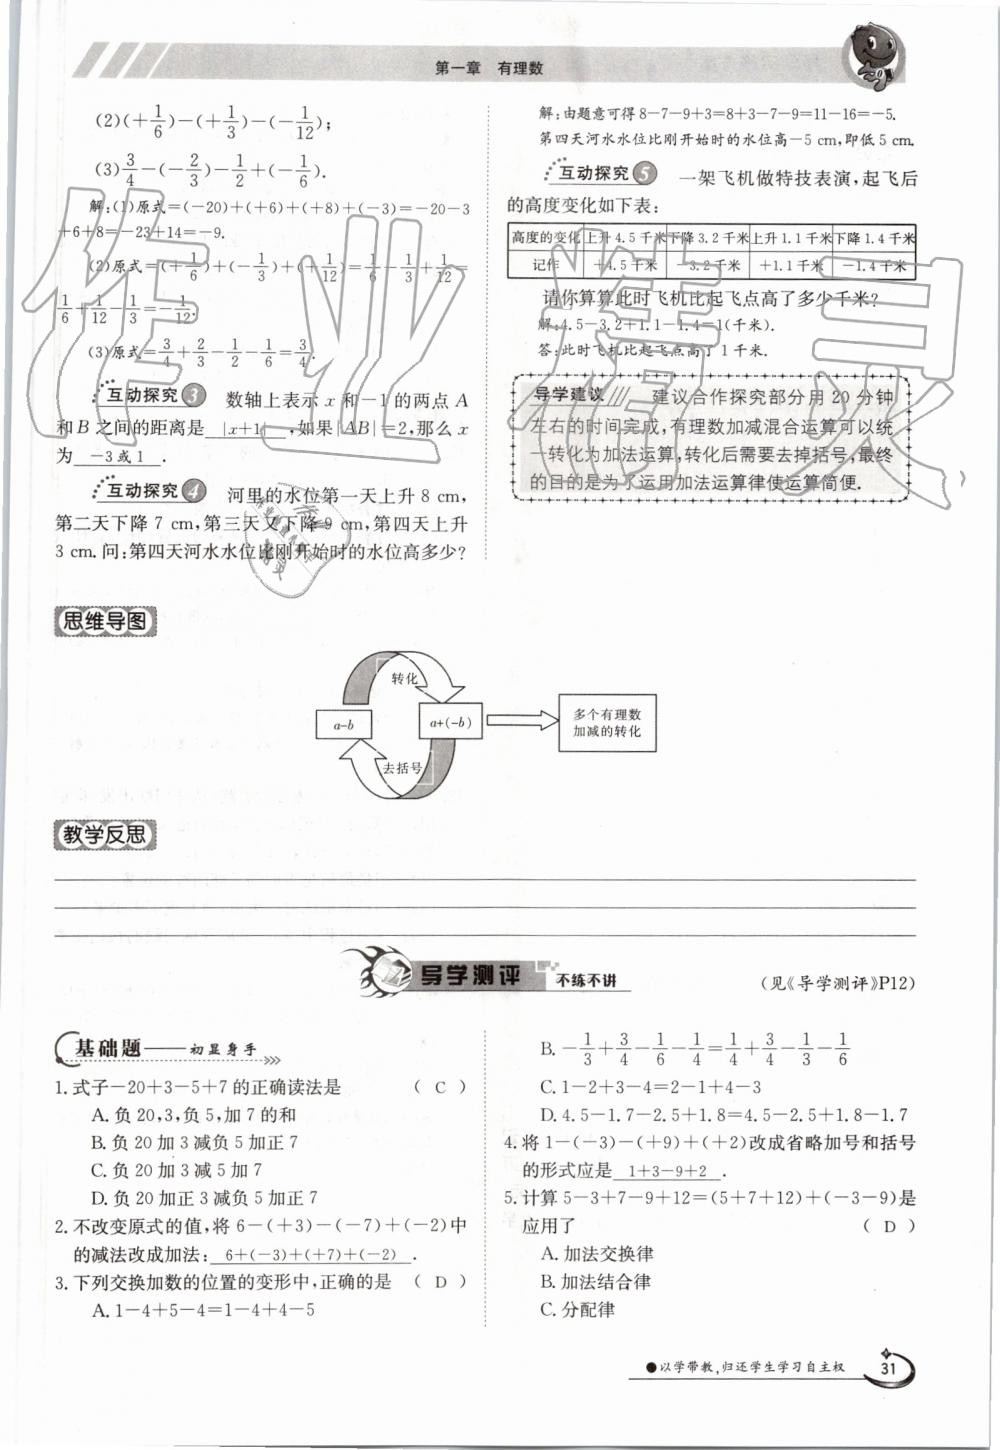 第一章 有理数
(2)(+1/6)-(+1/3)-(-1/12);
(3)3/4-(-2/3)-1/2+(-1/6).
解:(1)原式=(-20)+(+6)+(+8)+(-3)=-20-3
+6+8=-23+14=-9.
(2)原式=(+1/6)+(-1/3)+(+1/12)=1/6-1/3+1/12=
1/6+1/12-1/3=-1/12.
(3)原式=3/4+2/3-1/2-1/6=3/4.
互动探究3 数轴上表示 x 和-1 的两点 A
和 B 之间的距离是 |x+1| ,如果|AB|=2,那么 x
为 -3或1 .
互动探究4 河里的水位第一天上升 8 cm,
第二天下降 7 cm,第三天又下降 9 cm,第四天上升
3 cm.问:第四天河水水位比刚开始时的水位高多少?
解:由题意可得8-7-9+3=8+3-7-9=11-16=-5.
第四天河水水位比刚开始时的水位高-5 cm,即低5 cm.
互动探究5 一架飞机做特技表演,起飞后
的高度变化如下表:
高度的变化 上升4.5千米 下降3.2千米 上升1.1千米 下降1.4千米
记作 +4.5千米 -3.2千米 +1.1千米 -1.4千米
请你算算此时飞机比起飞点高了多少千米?
解:4.5-3.2+1.1-1.4=1(千米).
答:此时飞机比起飞点高了1千米.
导学建议 建议合作探究部分用 20 分钟
左右的时间完成,有理数加减混合运算可以统
一转化为加法运算,转化后需要去掉括号,最终
的目的是为了运用加法运算律使运算简便.
思维导图
转化
a-b
a+(-b)
去括号
多个有理数
加减的转化
教学反思
导学测评 不练不讲
(见《导学测评》P12)
基础题——初显身手
1.式子-20+3-5+7 的正确读法是 ( C )
A.负 20,3,负 5,加 7 的和
B.负 20 加 3 减负 5 加正 7
C.负 20 加 3 减 5 加 7
D.负 20 加正 3 减负 5 加正 7
2.不改变原式的值,将 6-(+3)-(-7)+(-2)中
的减法改成加法: 6+(-3)+(+7)+(-2) .
3.下列交换加数的位置的变形中,正确的是 ( D )
A.1-4+5-4=1-4+4-5
B.-1/3+3/4-1/6-1/4=1/4+3/4-1/3-1/6
C.1-2+3-4=2-1+4-3
D.4.5-1.7-2.5+1.8=4.5-2.5+1.8-1.7
4.将 1-(-3)-(+9)+(+2)改成省略加号和括号
的形式应是 1+3-9+2 .
5.计算 5-3+7-9+12=(5+7+12)+(-3-9)是
应用了 ( D )
A.加法交换律
B.加法结合律
C.分配律
●以学带教,归还学生学习自主权 31
作业精灵